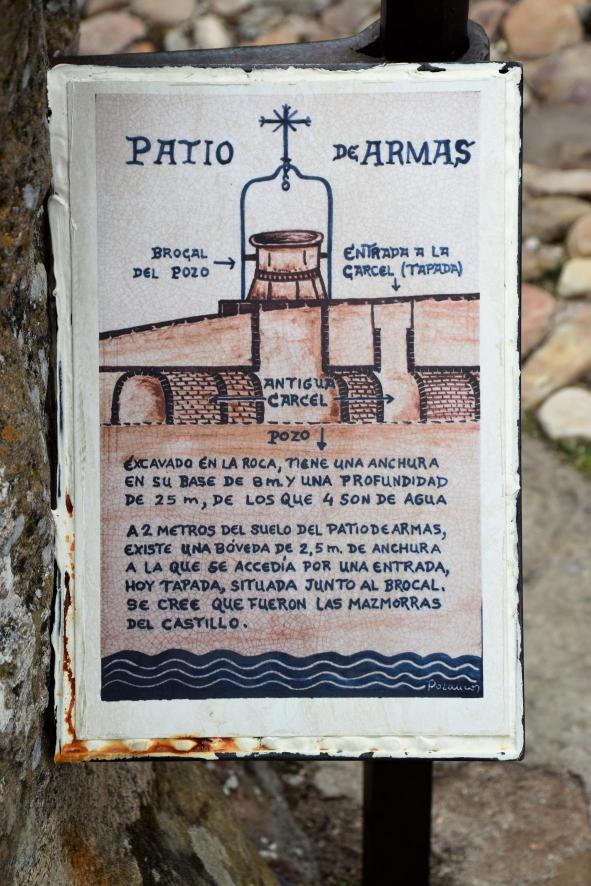 PATIO DE ARMAS
BROCAL
DEL POZO
ENTRADA A LA
CARCEL (TAPADA)
ANTIGUA
CARCEL
POZO
EXCAVADO EN LA ROCA, TIENE UNA ANCHURA
EN SU BASE DE 8 m. Y UNA PROFUNDIDAD
DE 25 m, DE LOS QUE 4 SON DE AGUA
A 2 METROS DEL SUELO DEL PATIO DE ARMAS,
EXISTE UNA BÓVEDA DE 2,5 m. DE ANCHURA
A LA QUE SE ACCEDÍA POR UNA ENTRADA,
HOY TAPADA, SITUADA JUNTO AL BROCAL.
SE CREE QUE FUERON LAS MAZMORRAS
DEL CASTILLO.